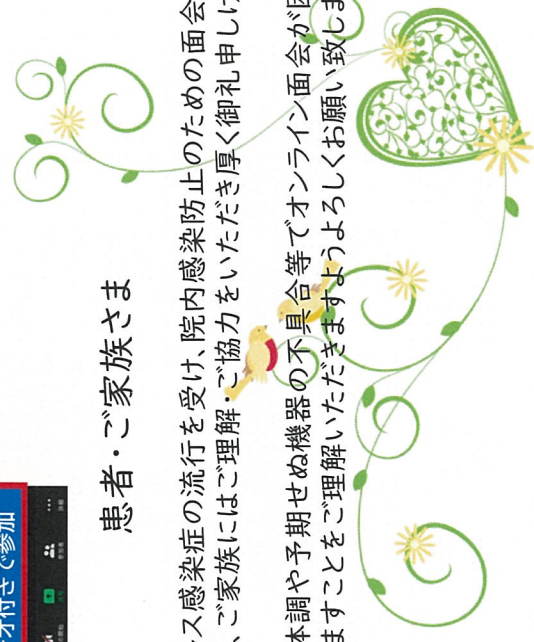 患者・ご家族さま
ス感染症の流行を受け、院内感染防止のための面会
、ご家族にはご理解・ご協力をいただき厚く御礼申し
体調や予期せぬ機器の不具合等でオンライン面会が
ますことをご理解いただきますようよろしくお願い致しま
オ付きで参加